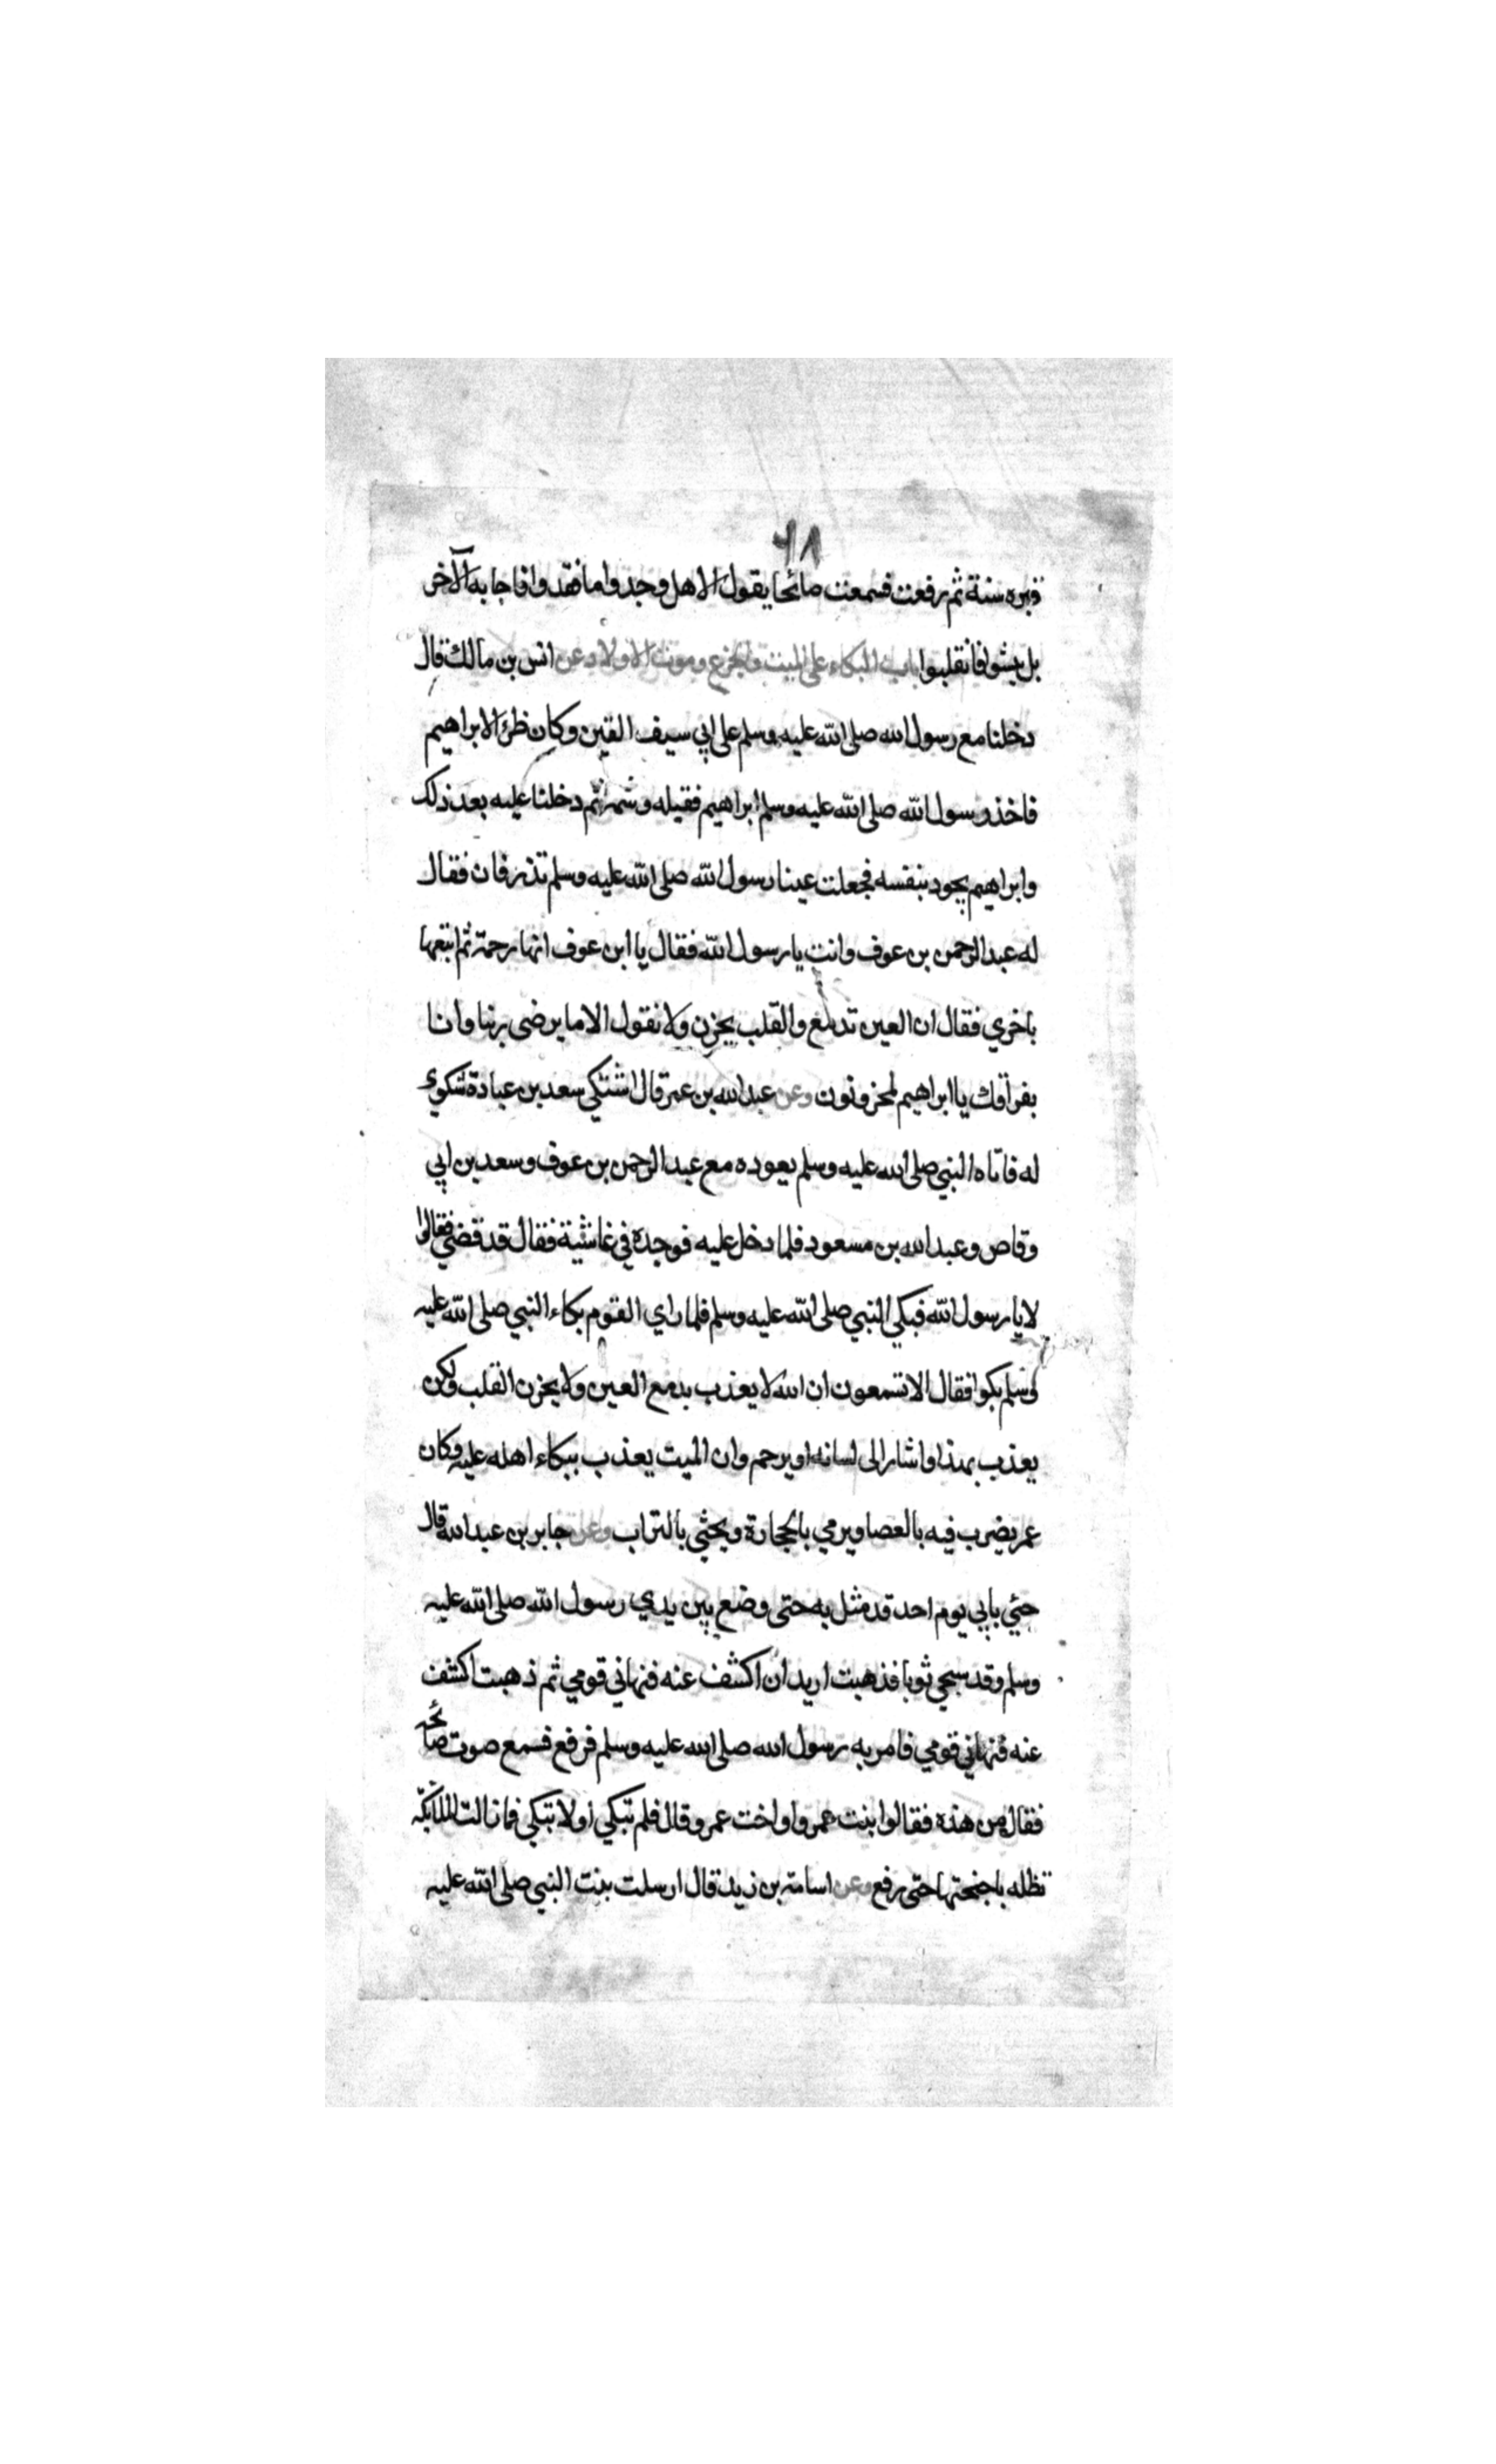 ٦٨
قبره سنة ثم رفعت فسمعت صائحا يقول الا هل وجدوا ما فقدوا فاجابه الآخر
بل يئسوا فانقلبوا باب البكاء على الميت والجزع وموت الاولاد عن انس بن مالك قال
دخلنا مع رسول الله صلى الله عليه وسلم على ابي سيف القين وكان ظئرا لابراهيم
فاخذ رسول الله صلى الله عليه وسلم ابراهيم فقبله وشمه ثم دخلنا عليه بعد ذلك
وابراهيم يجود بنفسه فجعلت عينا رسول الله صلى الله عليه وسلم تذرفان فقال
له عبد الرحمن بن عوف وانت يا رسول الله فقال يا ابن عوف انها رحمة ثم اتبعها
باخري فقال ان العين تدمع والقلب يحزن ولا نقول الا ما يرضى ربنا وانا
بفراقك يا ابراهيم لمحزونون وعن عبد الله بن عمر قال اشتكي سعد بن عبادة شكوي
له فاتاه النبي صلى الله عليه وسلم يعوده مع عبد الرحمن بن عوف وسعد بن ابي
وقاص وعبد الله بن مسعود فلما دخل عليه فوجده في غاشية فقال قد قضي فقالوا
لا يا رسول الله فبكي النبي صلى الله عليه وسلم فلما راي القوم بكاء النبي صلى الله عليه
وسلم بكوا فقال الا تسمعون ان الله لا يعذب بدمع العين ولا بحزن القلب ولكن
يعذب بهذا واشار الى لسانه او يرحم وان الميت يعذب ببكاء اهله عليه وكان
عمر يضرب فيه بالعصا ويرمي بالحجارة ويحثي بالتراب وعن جابر بن عبد الله قال
جئي بابي يوم احد قد مثل به حتى وضع بين يدي رسول الله صلى الله عليه
وسلم وقد سجي ثوبا فذهبت اريد ان اكشف عنه فنهاني قومي ثم ذهبت اكشف
عنه فنهاني قومي فامر به رسول الله صلى الله عليه وسلم فرفع فسمع صوت صائحه
فقال من هذه فقالوا بنت عمرو او اخت عمرو قال فلم تبكي اولا تبكي فما زالت الملائكة
تظله باجنحتها حتى رفع وعن اسامة بن زيد قال ارسلت بنت النبي صلى الله عليه